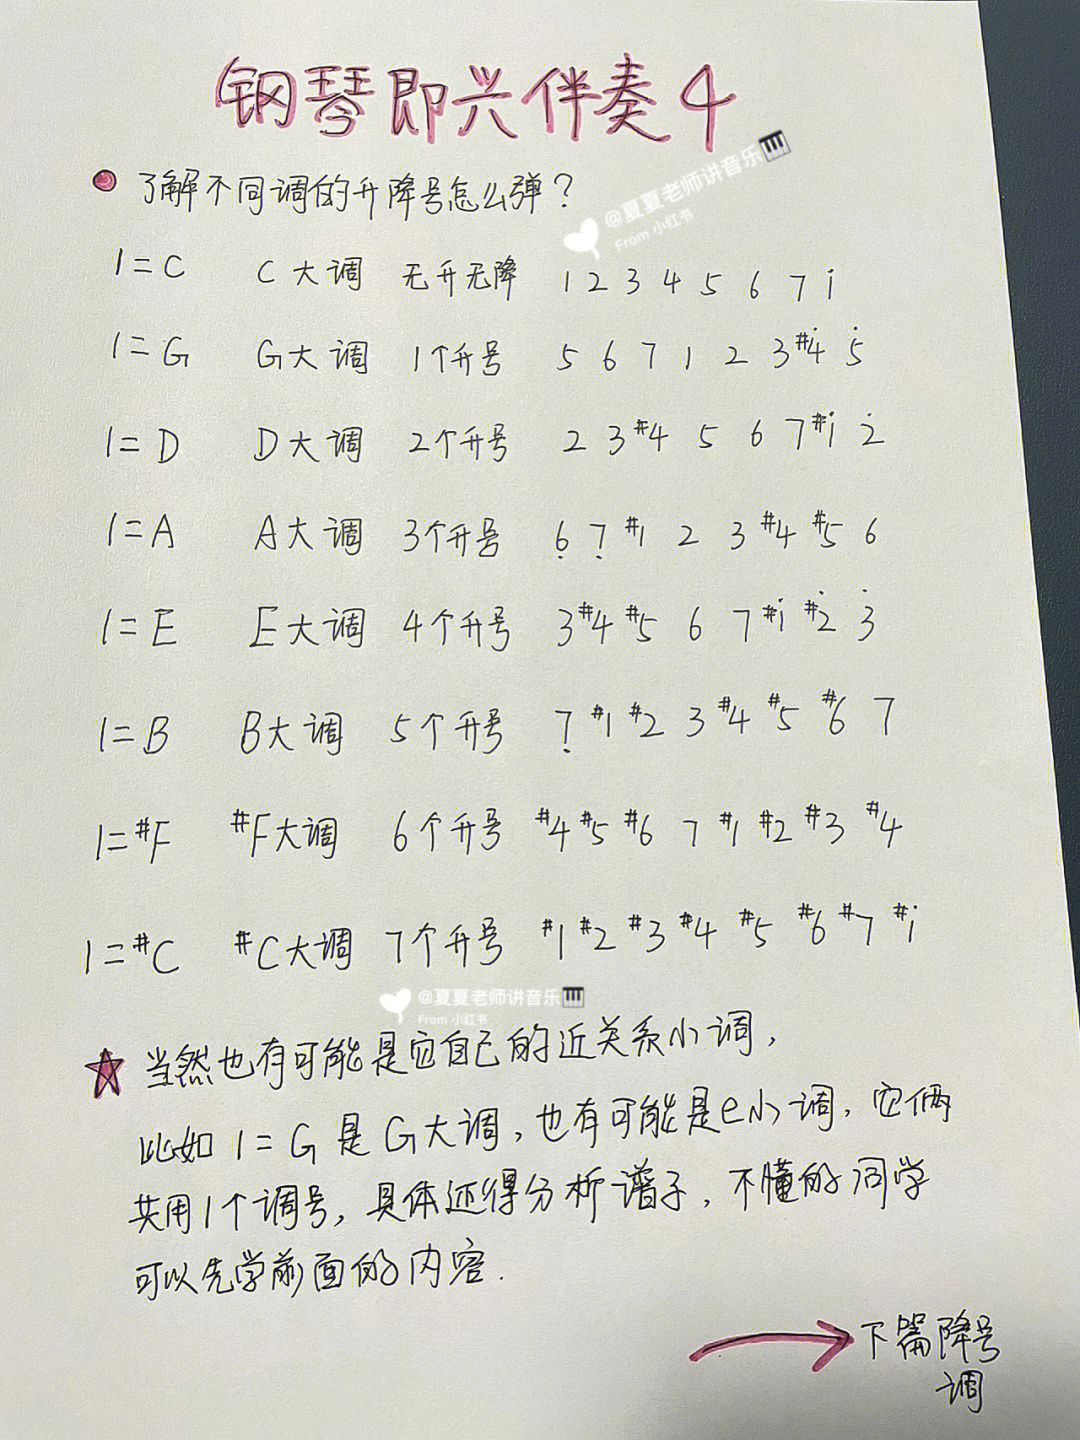 钢琴即兴伴奏4
了解不同调的升降号怎么弹？
@夏夏老师讲音乐🎹
From 小红书
1=C C大调 无升无降 1 2 3 4 5 6 7 i
1=G G大调 1个升号 5 6 7 1 2 3 #4̇ 5̇
1=D D大调 2个升号 2 3 #4 5 6 7 #i 2̇
1=A A大调 3个升号 6̣ 7̣ #1 2 3 #4 #5 6
1=E E大调 4个升号 3 #4 #5 6 7 #i #2̇ 3̇
1=B B大调 5个升号 7̣ #1 #2 3 #4 #5 #6 7
1=#F #F大调 6个升号 #4 #5 #6 7 #1 #2 #3 #4
1=#C #C大调 7个升号 #1 #2 #3 #4 #5 #6 #7 #i
@夏夏老师讲音乐🎹
From 小红书
当然也有可能是它自己的近关系小调，
比如 1=G 是 G大调，也有可能是e小调，它俩
共用1个调号，具体还得分析谱子，不懂的同学
可以先学前面的内容.
下篇降号
调